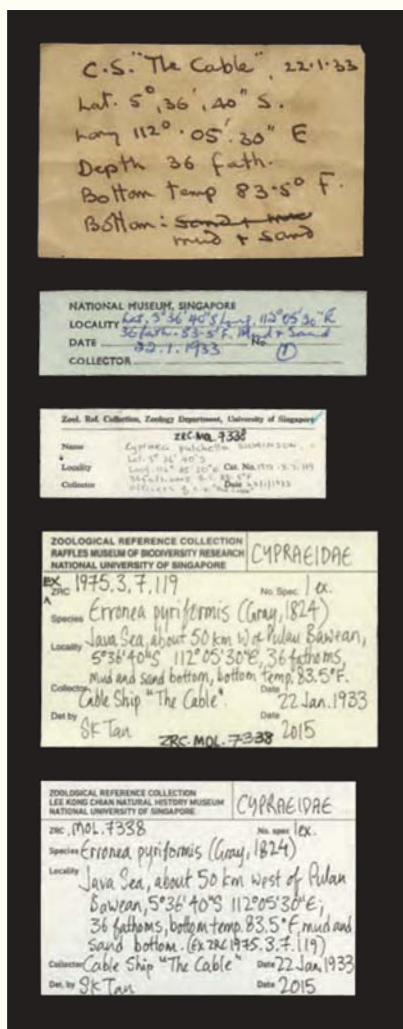 C.S. "The Cable", 22.1.33
Lat. 5°, 36', 40" S.
Long 112°. 05'. 30" E
Depth 36 fath.
Bottom temp 83.5° F.
Bottom: sand + mud
mud + sand
NATIONAL MUSEUM, SINGAPORE
LOCALITY Lat. 5°36'40"S Long. 112°05'30"E
36 fath. 83.5°F. Mud & Sand
DATE 22.1.1933 No. ①
COLLECTOR
Zool. Ref. Collection, Zoology Department, University of Singapore
ZRC.MOL.7338
Name Cypraea pulchella SWAINSON
Lat. 5° 36' 40"S
Locality Long. 112° 05' 30"E Cat. No. 1975.3.7.119
Collector Date 22/1/1933
Officers of c.s. "The Cable"
ZOOLOGICAL REFERENCE COLLECTION
RAFFLES MUSEUM OF BIODIVERSITY RESEARCH
NATIONAL UNIVERSITY OF SINGAPORE
CYPRAEIDAE
EX ZRC 1975.3.7.119 No. Spec. 1 ex.
Species Erronea pyriformis (Gray, 1824)
Locality Java Sea, about 50 km W of Pulau Bawean,
5°36'40"S 112°05'30"E, 36 fathoms,
mud and sand bottom, bottom temp. 83.5°F.
Collector Cable Ship "The Cable". Date 22 Jan. 1933
Det by SK Tan Date 2015
ZRC.MOL.7338
ZOOLOGICAL REFERENCE COLLECTION
LEE KONG CHIAN NATURAL HISTORY MUSEUM
NATIONAL UNIVERSITY OF SINGAPORE
CYPRAEIDAE
ZRC. MOL.7338 No. spec 1ex.
Species Erronea pyriformis (Gray, 1824)
Locality Java Sea, about 50 km west of Pulau
Bawean, 5°36'40"S 112°05'30"E;
36 fathoms, bottom temp. 83.5°F, mud and
sand bottom. (Ex ZRC 1975.3.7.119)
Collector Cable Ship "The Cable" Date 22 Jan. 1933
Det. by SK Tan Date 2015